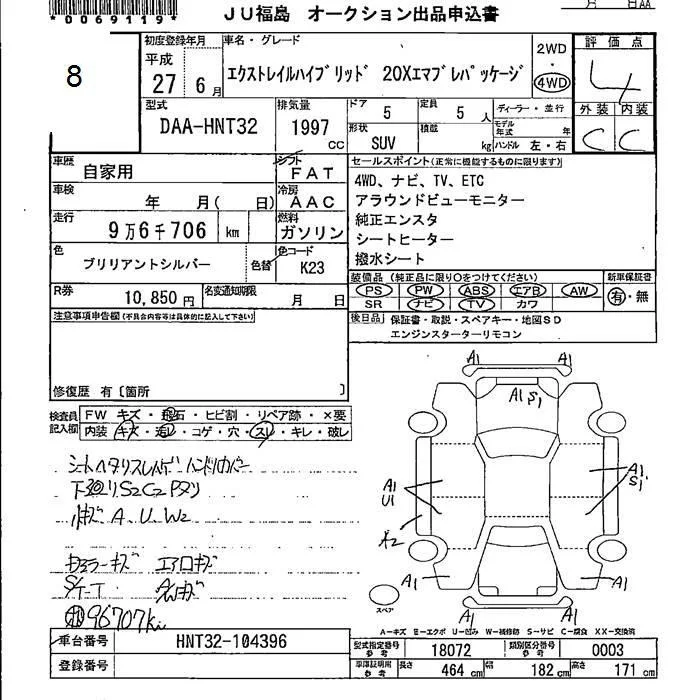 *0069119*
JU福島 オークション出品申込書
月 日AA
8
初度登録年月
平成
27 6月
車名・グレード
エクストレイルハイブリッド 20Xエマブレパッケージ
2WD
・
4WD
評価点
4
外装 内装
C C
型式
DAA-HNT32
排気量
1997 CC
ドア 5
定員 5 人
ディーラー・並行
形状 SUV
積載 kg
モデル年式 年
ハンドル 左・右
車歴
自家用
シフト
FAT
車検
年 月( 日)
冷房
AAC
走行
9万6千706 km
燃料
ガソリン
色
ブリリアントシルバー
色替
色コード
K23
R券
10,850 円
名変通知期限
月 日
セールスポイント(正常に機能するものに限ります)
4WD、ナビ、TV、ETC
アラウンドビューモニター
純正エンスタ
シートヒーター
撥水シート
装備品(純正品に限り○をつけてください)
PS PW ABS エアB AW
SR ナビ TV カワ
新車保証書
有・無
後日品 保証書・取説・スペアキー・地図SD
エンジンスターターリモコン
注意事項申告欄(不具合内容等は具体的に記入して下さい)
修復歴 有〔箇所 〕
検査員記入欄
FW キズ・飛石・ヒビ割・リペア跡・×要
内装 キズ・汚レ・コゲ・穴・スレ・キレ・破レ
シートヘタリスレ ハンドルカバー
下廻リS2C2
小キズ A U W2
ドアミラーキズ エアロキズ
S/T-T
96707km
A1 A1
A1 S1
A1
U1
A1
S1
A2
A1 A1
A1 A1
スペア
A-キズ E-エクボ U-凹み W-補修跡 S-サビ C-腐食 XX-交換済
車台番号 HNT32-104396
登録番号
型式指定番号 参考 18072
類別区分番号 参考 0003
車庫証明用 参考 長さ 464 cm 幅 182 cm 高さ 171 cm